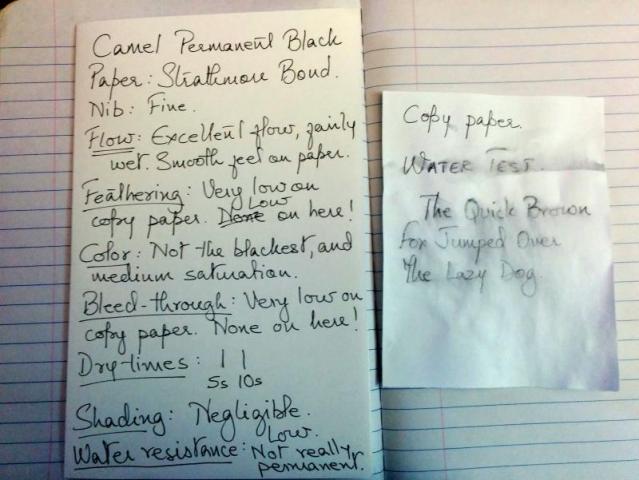 Camel Permanent Black
Paper: Strathmore Bond.
Nib: Fine.
Flow: Excellent flow, fairly
wet. Smooth feel on paper.
Feathering: Very low on
Low
copy paper. None on here!
Color: Not the blackest, and
medium saturation.
Bleed-through: Very low on
copy paper. None on here!
Dry-times: | |
5s 10s
Shading: Negligible.
Low.
Water resistance: Not really
permanent.
Copy paper.
WATER TEST.
The Quick Brown
Fox Jumped Over
The Lazy Dog.